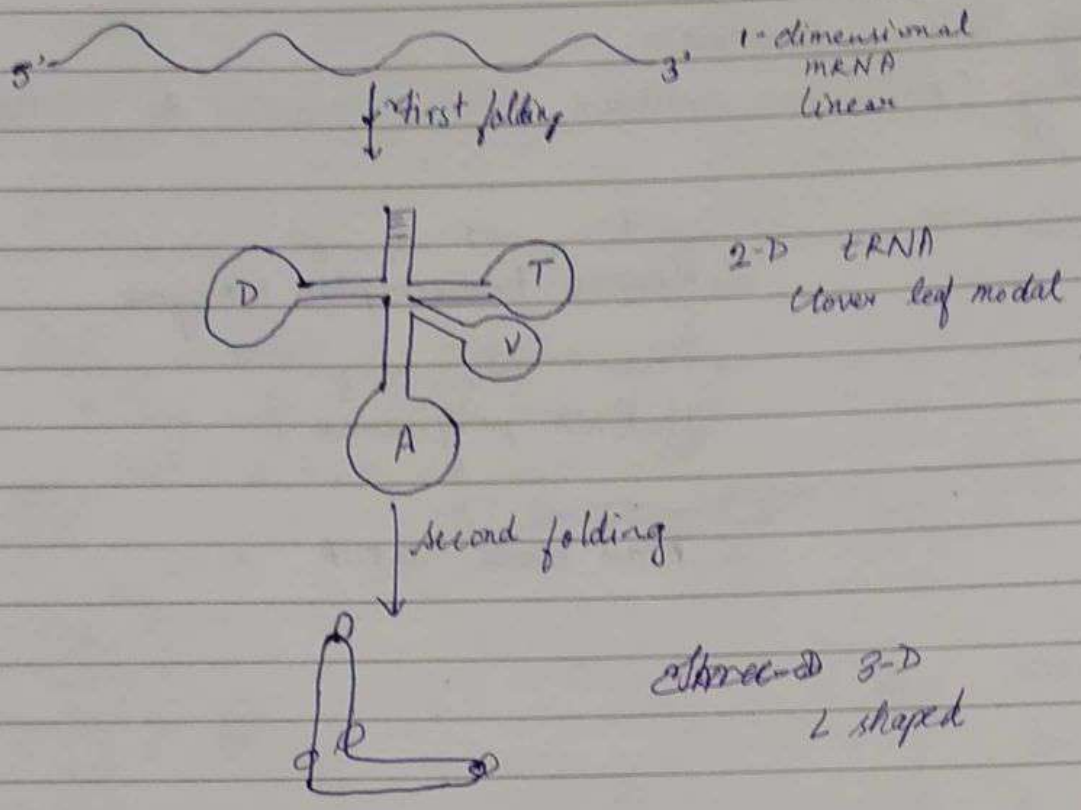 5' 3' 1-dimensional
mRNA
linear
first folding
2-D tRNA
Clover leaf modal
D T
V
A
second folding
3-D
L shaped